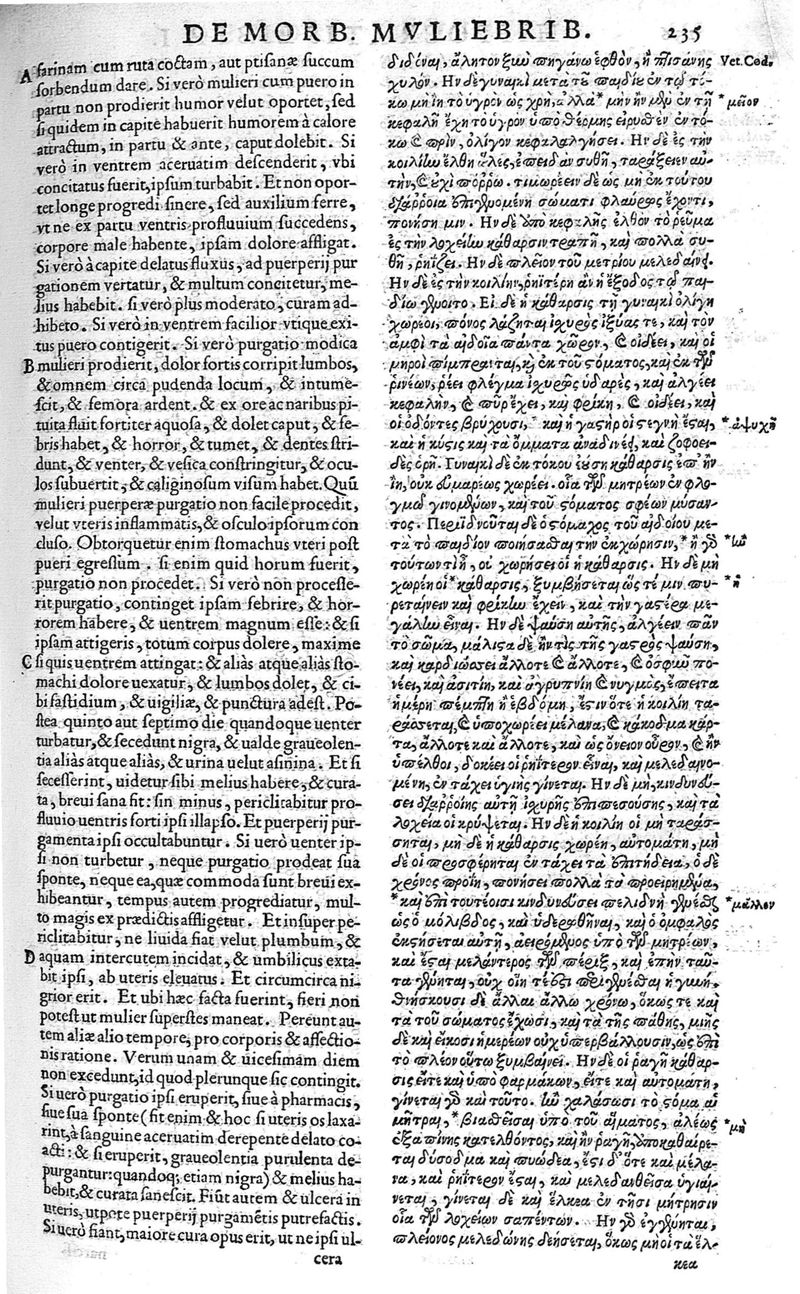 DE MORB. MVLIEBRIB. 235
A farinam cum ruta coctam, aut ptisanæ succum
sorbendum dare. Si verò mulieri cum puero in
partu non prodierit humor velut oportet, sed
si quidem in capite habuerit humorem à calore
attractum, in partu & ante, caput dolebit. Si
verò in ventrem aceruatim descenderit, vbi
concitatus fuerit, ipsum turbabit. Et non opor-
tet longe progredi sinere, sed auxilium ferre,
vt ne ex partu ventris profluuium succedens,
corpore male habente, ipsam dolore affligat.
Si verò à capite delatus fluxus, ad puerperij pur
gationem vertatur, & multum concitetur, me-
lius habebit. si verò plus moderato, curam ad-
hibeto. Si verò in ventrem facilior vtique exi-
tus puero contigerit. Si verò purgatio modica
B mulieri prodierit, dolor fortis corripit lumbos,
& omnem circa pudenda locum, & intume-
scit, & femora ardent. & ex ore ac naribus pi-
tuita fluit fortiter aquosa, & dolet caput, & fe-
bris habet, & horror, & tumet, & dentes stri-
dunt, & venter, & vesica constringitur, & ocu-
los subuertit, & caliginosum visum habet. Quũ
mulieri puerperæ purgatio non facile procedit,
velut vteris inflammatis, & osculo ipsorum con
cluso. Obtorquetur enim stomachus vteri post
pueri egressum. si enim quid horum fuerit,
purgatio non procedet. Si verò non processe-
rit purgatio, continget ipsam febrire, & hor-
rorem habere, & uentrem magnum esse: & si
ipsam attigeris, totum corpus dolere, maxime
C si quis uentrem attingat: & aliàs atque aliàs sto-
machi dolore uexatur, & lumbos dolet, & ci-
bi fastidium, & uigiliæ, & punctura adest. Po-
stea quinto aut septimo die quandoque uenter
turbatur, & secedunt nigra, & ualde graueolen-
tia aliàs atque aliàs, & urina uelut asinina. Et si
secesserint, uidetur sibi melius habere, & cura-
ta, breui sana fit: sin minus, periclitabitur pro-
fluuio uentris forti ipsi illapso. Et puerperij pur-
gamenta ipsi occultabuntur. Si uerò uenter ip-
si non turbetur, neque purgatio prodeat sua
sponte, neque ea, quæ commoda sunt breui ex-
hibeantur, tempus autem progrediatur, mul-
to magis ex prædictis affligetur. Et insuper pe-
riclitabitur, ne liuida fiat velut plumbum, &
D aquam intercutem incidat, & umbilicus exta-
bit ipsi, ab uteris eleuatus. Et circumcirca ni-
grior erit. Et ubi hæc facta fuerint, fieri non
potest ut mulier superstes maneat. Pereunt au-
tem aliæ alio tempore, pro corporis & affectio-
nis ratione. Verum unam & uicesimam diem
non excedunt, id quod plerunque sic contingit.
Si uerò purgatio ipsi eruperit, siue à pharmacis,
siue sua sponte (fit enim & hoc si uteris os laxa-
rint, à sanguine aceruatim derepente delato co-
acti: & si eruperit, graueolentia purulenta de-
purgantur: quandoq; etiam nigra) & melius ha-
bebit, & curata sanescit. Fiũt autem & ulcera in
uteris, utpote puerperij purgamẽtis putrefactis.
Si uerò fiant, maiore cura opus erit, ut ne ipsi ul-
cera
διδόναι, ἄλητον ξὺν πηγάνῳ ἑφθὸν, ἢ πτισάνης Vet. Cod.
χυλόν. Ην δὲ γυναικὶ μετὰ τοῦ παιδίου ἐν τῷ τό-
κῳ μὴ ἴῃ τὸ ὑγρὸν ὡς χρὴ, ἀλλὰ * μὴν ἢν μὲν ἐν τῇ * μεῖον
κεφαλῇ ἔχῃ τὸ ὑγρὸν ὑπὸ θέρμης εἰρυθὲν ἐν τό-
κῳ καὶ πρὶν, ὀλίγον κεφαλαλγήσει. Ην δὲ ἐς τὴν
κοιλίην ἔλθῃ ἁλὲς, ἐπειδὰν συθῇ, ταράξειεν αὐ-
τήν, καὶ οὐχὶ πόῤῥω. τιμωρέειν δὲ ὡς μὴ ἐκ τούτου
διάῤῥοια ἐπιγενομένη σώματι φλαύρως ἔχοντι,
πονήσῃ μιν. Ην δὲ ὑπὸ κεφαλῆς ἐλθὸν τὸ ῥεῦμα
ἐς τὴν λοχείην κάθαρσιν τραπῇ, καὶ πολλὰ συ-
θῇ, ῥηΐζει. Ην δὲ πλεῖον τοῦ μετρίου μελεδαίνειν.
Ην δὲ ἐς τὴν κοιλίην, ῥηϊτέρη ἂν ἡ ἔξοδος τῷ παι-
δίῳ γένοιτο. Εἰ δὲ ἡ κάθαρσις τῇ γυναικὶ ὀλίγη
χωρέοι, πόνος λάζηται ἰσχυρὸς ἰξύας τε, καὶ τὸν
ἀμφὶ τὰ αἰδοῖα πάντα χῶρον, καὶ οἰδέει, καὶ οἱ
μηροὶ πίμπρανται, καὶ ἐκ τοῦ στόματος, καὶ ἐκ τῶν
ῥινέων, ῥέει φλέγμα ἰσχυρῶς ὑδαρὲς, καὶ ἀλγέει
κεφαλὴν, καὶ πῦρ ἔχει, καὶ φρίκη, καὶ οἰδέει, καὶ
οἱ ὀδόντες βρύχουσι, * καὶ ἡ γαστήρ οἱ στεγνὴ ἔσται, * ἀψυχῆ
καὶ ἡ κύστις καὶ τὰ ὄμματα ἀναδινέει, καὶ ζοφοει-
δὲς ὁρῇ. Γυναικὶ δὲ ἐκ τόκου ἐούσῃ κάθαρσις
οὐκ εὐμαρέως χωρέει. οἷα τῶν μητρέων ἐν φλο-
γμῷ γινομένων, καὶ τοῦ στόματος σφέων μύσαν-
τος. Περιδινοῦται δὲ ὁ στόμαχος τοῦ αἰδοίου με-
τὰ τὸ παιδίον ποιήσασθαι τὴν ἐκχώρησιν, * ἢ γὰρ * ἢν
τούτων τι ᾖ, οὐ χωρήσει οἱ ἡ κάθαρσις. Ην δὲ μὴ
χωρέῃ οἱ * κάθαρσις, ξυμβήσεται ὥς τέ μιν πυ- * ἡ
ρεταίνειν καὶ φρίκην ἔχειν, καὶ τὴν γαστέρα με-
γάλην εἶναι. Ην δὲ ψαύσῃ αὐτῆς, ἀλγέειν πᾶν
τὸ σῶμα, μάλιστα δὲ ἤν τις τῆς γαστρὸς ψαύσῃ,
καὶ καρδιώσσει ἄλλοτε καὶ ἄλλοτε, καὶ ὀσφὺν πο-
νέει, καὶ ἀσιτίη, καὶ ἀγρυπνίη καὶ νυγμὸς, ἔπειτα
ἡμέρῃ πέμπτῃ ἢ ἑβδόμῃ, ἔστιν ὅτε ἡ κοιλίη τα-
ράσσεται, καὶ ὑποχωρέει μέλανα, καὶ κάκοδμα κάρ-
τα, ἄλλοτε καὶ ἄλλοτε, καὶ ὡς ὄνειον οὖρον, καὶ ἢν
ὑπέλθοι, δοκέει οἱ ῥηΐτερον εἶναι, καὶ μελεδαινο-
μένη, ἐν τάχει ὑγιὴς γίνεται. Ην δὲ μὴ, κινδυνεύ-
σει διαῤῥοίης αὐτῇ ἰσχυρῆς ἐπιπεσούσης, καὶ τὰ
λοχεῖα οἱ κρύψεται. Ην δὲ ἡ κοιλίη οἱ μὴ ταράσ-
σηται, μὴ δὲ ἡ κάθαρσις χωρέῃ, αὐτομάτη, μὴ
δέ οἱ προσφέρηται ἐν τάχει τὰ ἐπιτήδεια, ὁ δὲ
χρόνος προΐῃ, πονήσει πολλὰ τὰ προειρημένα,
* καὶ ἐπὶ τουτέοισι κινδυνεύσει πελιδνὴ γενέσθαι * μᾶλλον
ὡς ὁ μόλιβδος, καὶ ὑδεραθῆναι, καὶ ὁ ὀμφαλὸς
ἐκστήσεται αὐτῇ, ἀειρόμενος ὑπὸ τῶν μητρέων,
καὶ ἔσται μελάντερος τῶν πέριξ, καὶ ἐπὴν ταῦ-
τα γένηται, οὐχ οἵη τέ ἐστι περιγενέσθαι ἡ γυνή,
θνήσκουσι δὲ ἄλλαι ἄλλῳ χρόνῳ, ὅκως τε καὶ
τὰ τοῦ σώματος ἔχωσι, καὶ τὰ τῆς πάθης, μιῆς
δὲ καὶ εἴκοσι ἡμερέων οὐχ ὑπερβάλλουσιν, ὡς ἐπὶ
τὸ πλέον οὕτω ξυμβαίνει. Ην δὲ οἱ ῥαγῇ κάθαρ-
σις εἴτε καὶ ὑπὸ φαρμάκων, εἴτε καὶ αὐτομάτη,
γίνεται γὰρ καὶ τοῦτο. ἢν χαλάσωσι τὸ στόμα αἱ
μῆτραι, * βιασθεῖσαι ὑπὸ τοῦ αἵματος, ἁλέως * μὴ
ἐξαπίνης κατελθόντος, καὶ ἢν ῥαγῇ, ἀποκαθαίρε-
ται δύσοδμα καὶ πυώδεα, ἔστι δ᾽ ὅτε καὶ μέλα-
να, καὶ ῥηΐτερον ἔσται, καὶ μελεδανθεῖσα ὑγιαί-
νεται, γίνεται δὲ καὶ ἕλκεα ἐν τῇσι μήτρῃσιν
οἷα τῶν λοχείων σαπέντων. Ην γὰρ ἐγγένηται,
πλείονος μελεδώνης δεήσεται, ὅκως μὴ οἱ τὰ ἕλ-
κεα